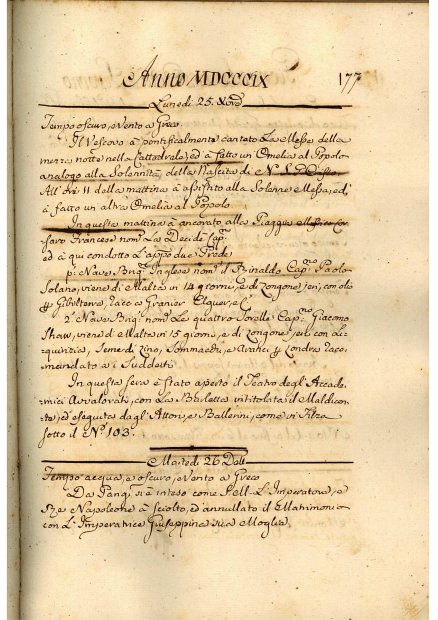 Anno MDCCCIX 177
Lunedì 25.
Tempo oscuro, e Vento a Greco
Il Vescovo à pontificalmente cantato La Messa della
mezza notte nella Cattedrale, ed à fatto un Omelia al Popolo
analogo alla Solennità della Nascita di N.
All' Ore 11 della mattina à assistito alla Solenne Messa, ed
à fatto un altra Omelia al Popolo
In questa mattina à ancorato alla Piaggia
Francese nom.
ed à qui condotto L'appo due Prede
p.ª Nave Brig.º Inglese nom.º il Rinaldo Cap.no Paolo
Solano, viene di Malta in 14 giorni, e di jeri, con olio
p Gibilterra,
2.ª Nave Brig.º nom.º Le quattro Sorelle Cap.no Giacomo
Shaw, viene di Malta in 15 giorni, e di jeri con
Seme di Lino, e p Londra
mandato a i Suddetti
In questa sera è stato aperto il Teatro degl' Accade-
mici Avvalorati, con La Burletta intitolata il Maldicen-
te, ed eseguita dagl' Attori, e Ballerini, come in Filza
sotto il N.º 103.
Martedì 26 Detto
Tempo acqua, e oscuro, e Vento a Greco
Da Parigi si è inteso come S. M. L'Imperatore, e
Re Napoleone à sciolto, ed annullato il Matrimonio
con L'Imperatrice Giuseppina sua Moglie,